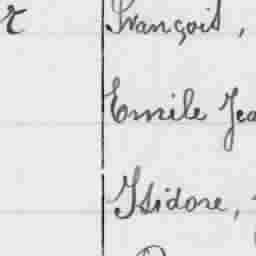 r François,
Emile Jea
Isidore,